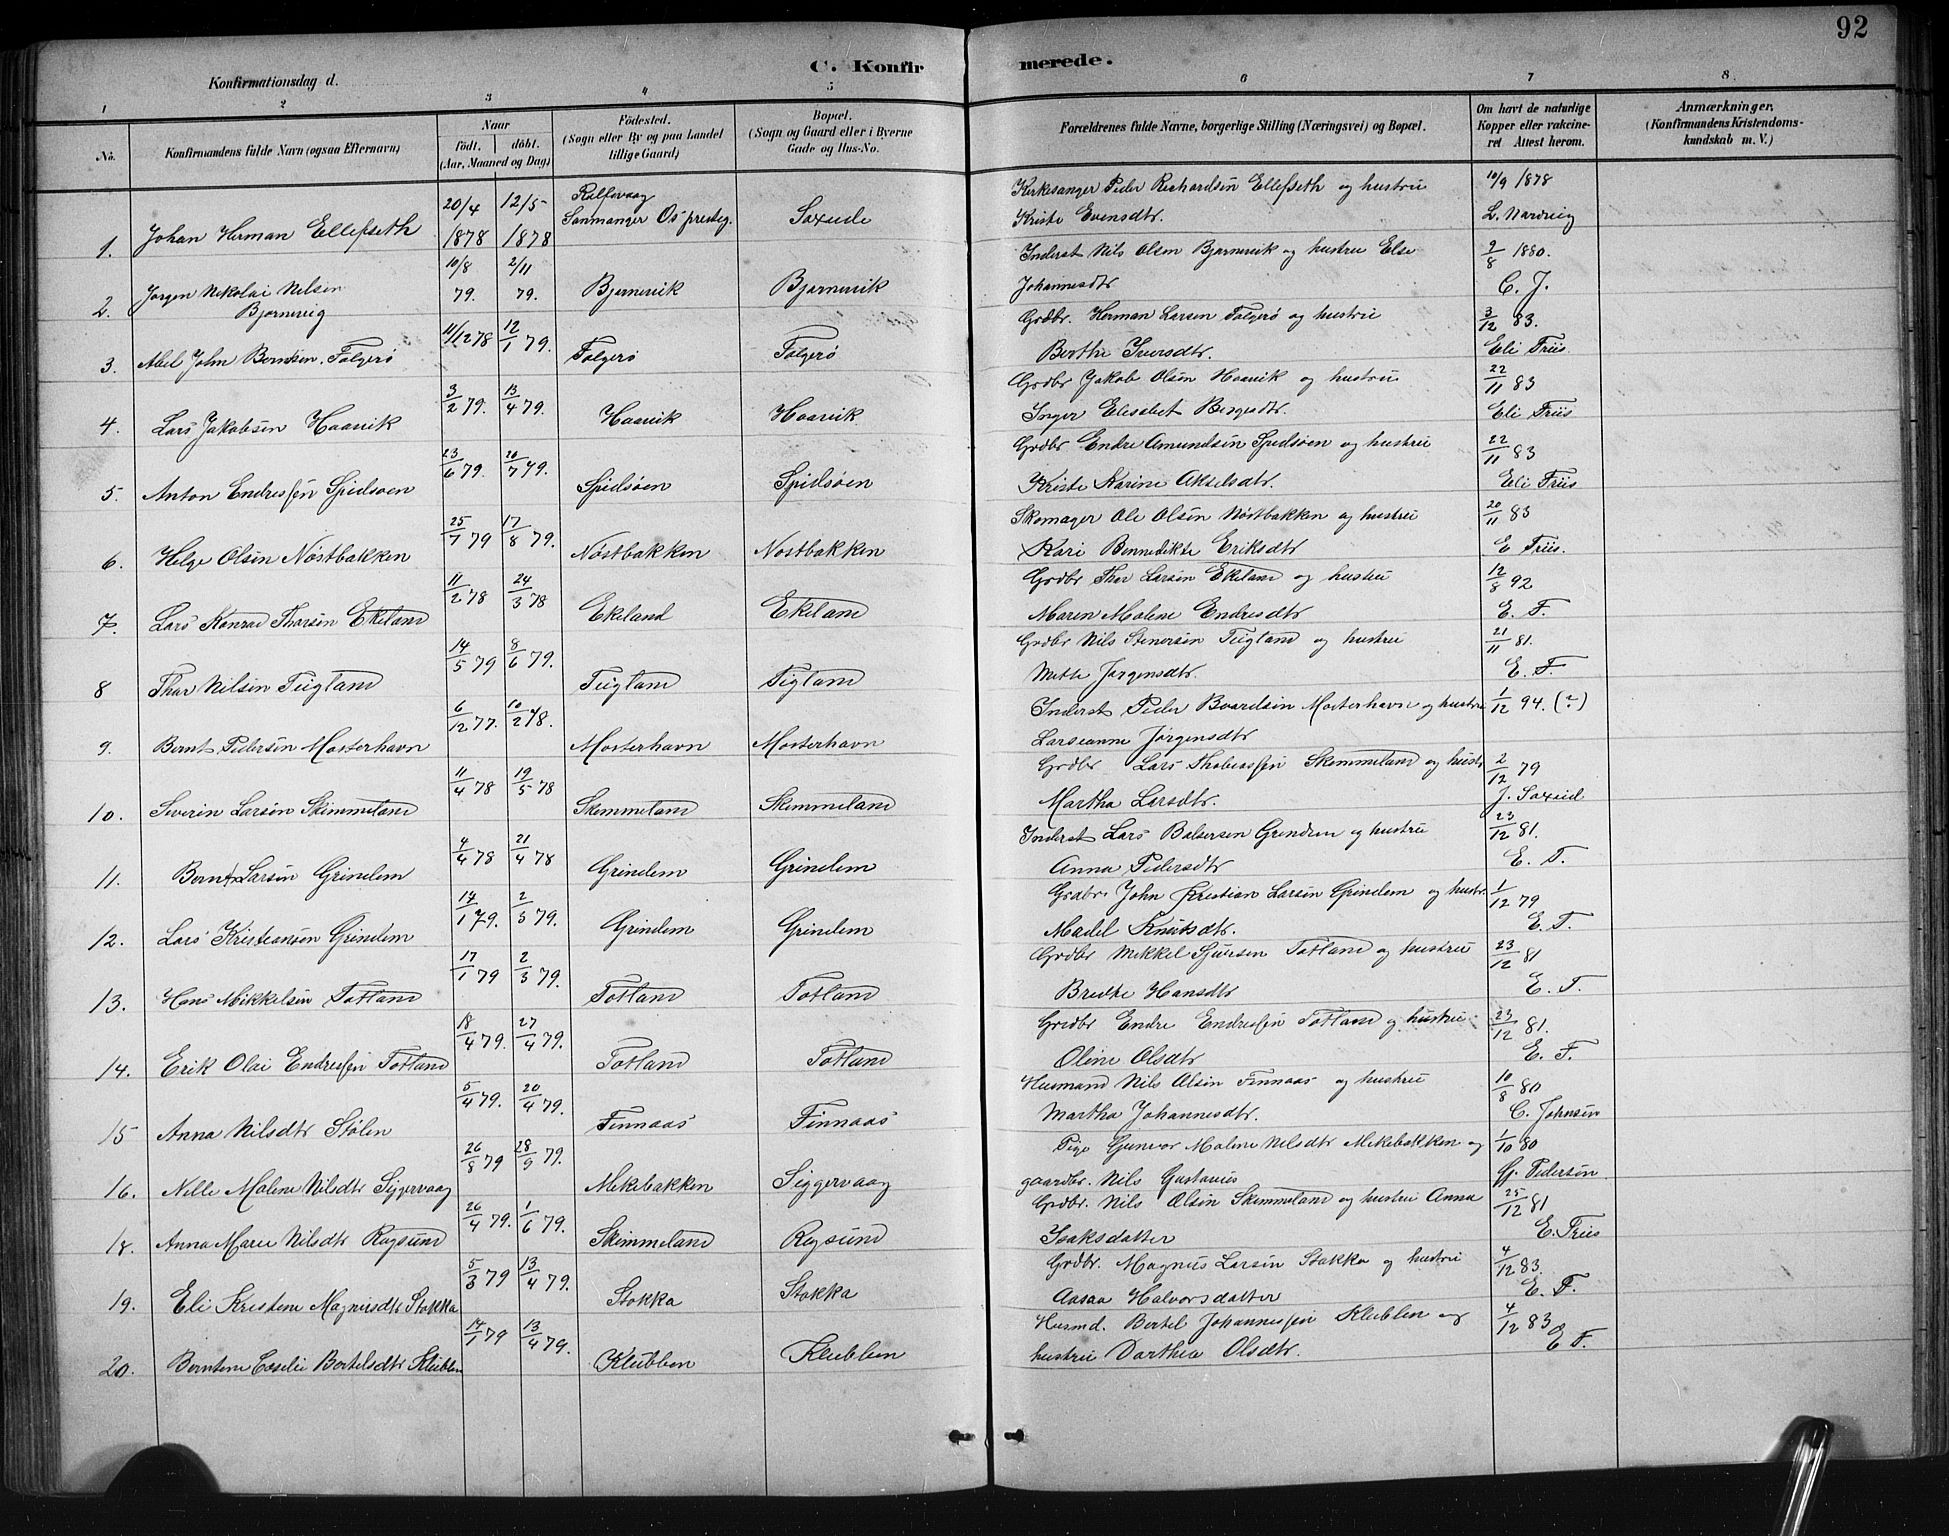 92
C. Konfirmerede.
Konfirmationsdag d.
1 2 3 4 5 6 7 8
No. Konfirmandens fulde Navn (ogsaa Efternavn) Naar födt. döbt. (Aar, Maaned og Dag) Födested. (Sogn eller By og paa Landet tillige Gaard) Bopæl. (Sogn og Gaard eller i Byerne Gade og Hus-No. Forældrenes fulde Navne, borgerlige Stilling (Næringsvei) og Bopæl. Om havt de naturlige Kopper eller vakcineret Attest herom. Anmærkninger. (Konfirmandens Kristendomskundskab m. V.)
1. Johan Herman Ellefseth 20/4 1878 12/5 1878 Sanmanger Os presteg. Kirkesanger Peder Richardsen Ellefseth og hustru 10/9 1878
Kriste Evensdtr.
2. Jørgen Nikolai Nilsen Bjørnevig 10/8 79. 2/11 79. Bjørnevik Bjørnevik Inderst Nils Olsen Bjørnevik og hustru Else 2/8 1880.
Johannesdtr C. J.
3. Abel John Berntsen Folgerø 11/12 78 12/1 79. Folgerø Folgerø Grdbr. Herman Larsen Folgerø og hustru 3/12 83.
Berthe Iversdtr. Eli Friis
4. Lars Jakobsen Haavik 3/2 79. 13/4 79. Haavik Haavik Grdbr Jakob Olsen Haavik og hustru 22/11 83
Inger Elisabet Børgesdtr. Eli Friis
5. Anton Endresen Spidsøen 23/6 79. 20/7 79. Spidsøen Spidsøen Grdbr Endre Amundsen Spidsøen og hustru 22/11 83
Kriste Karine Akselsdtr. Eli Friis
6. Helge Olsen Nøstbakken 25/7 79 17/8 79. Nøstbakken Nøstbakken Skomager Ole Olsen Nøstbakken og hustru 20/11 83
Kari Bennedikte Eriksdtr E Friis.
7. Lars Konrad Thorsen Ekeland 11/2 78 24/3 78 Ekeland Ekeland Grdbr Thor Larsen Ekeland og hustru 12/8 92
Maren Malene Endresdtr E. F.
8 Thor Nilsen Tegland 14/5 79 8/6 79. Tegland Tegland Grdbr Nils Stenersen Tegland og hustru 21/11 81.
Mette Jørgensdtr. E. F.
9. Bernt Pedersen Mosterhavn 6/12 77. 10/2 78. Mosterhavn Mosterhavn Inderst Peder Baardsen Mosterhavn og hustru 1/12 94. (?)
Larseanne Jørgensdtr
10. Severin Larsen Skimmeland 11/4 78 19/5 78 Skemmeland Skemmeland Grdbr Lars Thobiassen Skemmeland og hustr. 2/12 79
Martha Larsdtr. J. Soxud
11. Bernt Larsen Grindem 4/4 78 21/4 78 Grindem Grindem Inderst Lars Balsersen Grindem og hustru 23/12 81.
Anna Pedersdtr E. F.
12. Lars Kristiansen Grindem 17/1 79. 2/3 79. Grindem Grindem Grdbr. John Kristian Larsen Grindem og hustr. 1/12 79
Madel Knutsdtr. E. F.
13. Hans Mikkelsen Totland 17/1 79 2/3 79. Totland Totland Grdbr Mikkel Sjursen Totland og hustru 23/12 81
Bredte Hansdtr E. F.
14. Erik Olai Endresen Totland 18/4 79. 27/4 79. Totland Totland Grdbr Endre Endresen Totland og hustru 23/12 81.
Oline Olsdtr E. F.
15 Anna Nilsdtr Stølen 5/4 79. 20/4 79. Finnaas Finnaas Husmand Nils Olsen Finnaas og hustru 10/8 80
Martha Johannesdtr. C. Johnsen
16. Nille Malene Nilsdtr Siggervaag 26/8 79 28/9 79. Mekebakken Siggervaag Pige Gunvor Malene Nilsdtr Mekebakken og 1/10 80
gaardbr. Nils Gustavus Pedersen
18. Anna Marie Nilsdtr Røgsund 26/4 79. 1/6 79. Skimmeland Røgsund Grdbr. Nils Olsen Skemmeland og hustru Anna 25/12 81
Isaksdatter E. Friis
19. Eli Kristene Magnusdtr Stokka 5/3 79 13/4 79. Stokka Stokka Grdbr. Magnus Larsen Stokka og hustru 4/12 83.
Aasaa Halvorsdatter E. F.
20. Berntine Cecelie Bertelsdtr Klubben 14/1 79 13/4 79. Klubben Klubben Husmd. Bertel Johannessen Klubben og 4/12 83
hustru Dorthea Olsdtr. E F.